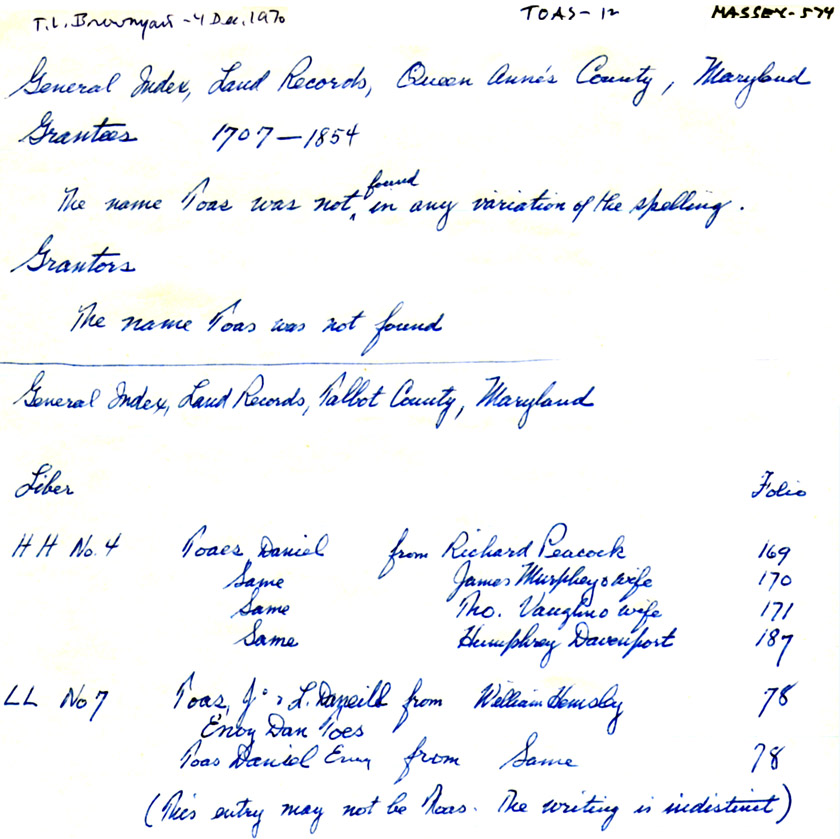 T. L. Brownyard - 4 Dec, 1970 TOAS-12 MASSEY-574
General Index, Land Records, Queen Anne's County, Maryland
Grantees 1707-1854
The name Toas was not found in any variation of the spelling.
Grantors
The name Toas was not found
General Index, Land Records, Talbot County, Maryland
Liber Folio
HH No. 4 Toaes, Daniel from Richard Peacock 169
Same James Murphey & wife 170
Same Tho. Vaughn & wife 171
Same Humphrey Davenport 187
LL No 7 Toas, from William Hemsley 78
Dan Toes
Toas Daniel from Same 78
(This entry may not be Toas. The writing is indistinct)